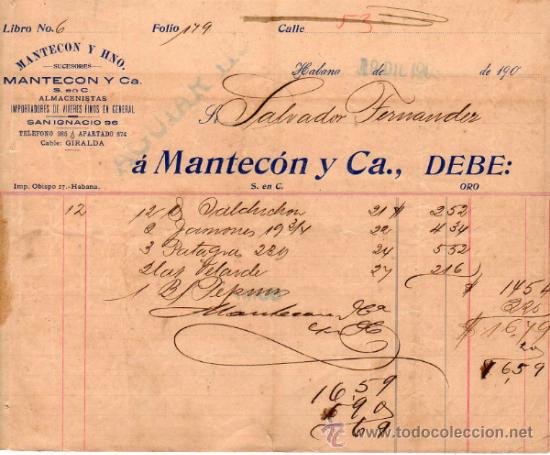 Libro No. 6 Folio 179 Calle 53
MANTECON Y HNO.
SUCESORES
MANTECON Y Ca.
S. en C.
ALMACENISTAS
IMPORTADORES DE VIVERES FINOS EN GENERAL
SAN IGNACIO 96
TELEFONO 385 APARTADO 874
Cable: GIRALDA
Habana de DIC 190 de 190
Salvador Fernandez
á Mantecón y Ca., DEBE:
Imp. Obispo 17.-Habana. S. en C. ORO
12 12 21 $ 2 52
2 Jamones 19 3/4 22 4 34
3 Patagra 229 24 5 52
2 las Velarde 27 2 16
1 B/ $ 14 54
Mantecon y Ca 2 25
$ 16.79
20
16,59
16,59
69
todocoleccion
www.todocoleccion.net